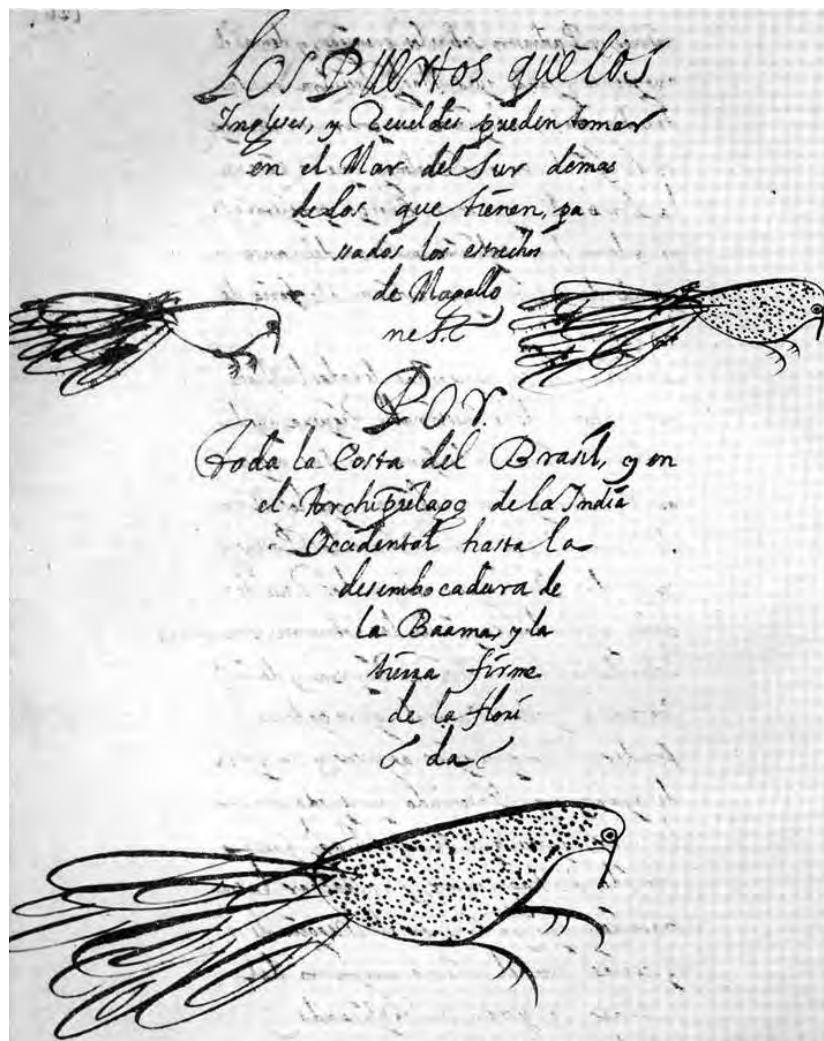 Los Puertos que los
Ingleses, y Reueldes pueden tomar
en el Mar del Sur demas
de los que tienen, pa
ssados los estrechos
de Magallo
nes. &
Por
toda la Costa del Brasil, y en
el Archipielago de la India
Occidental hasta la
desembocadura de
la Baama, y la
tierra firme
de la flori
da